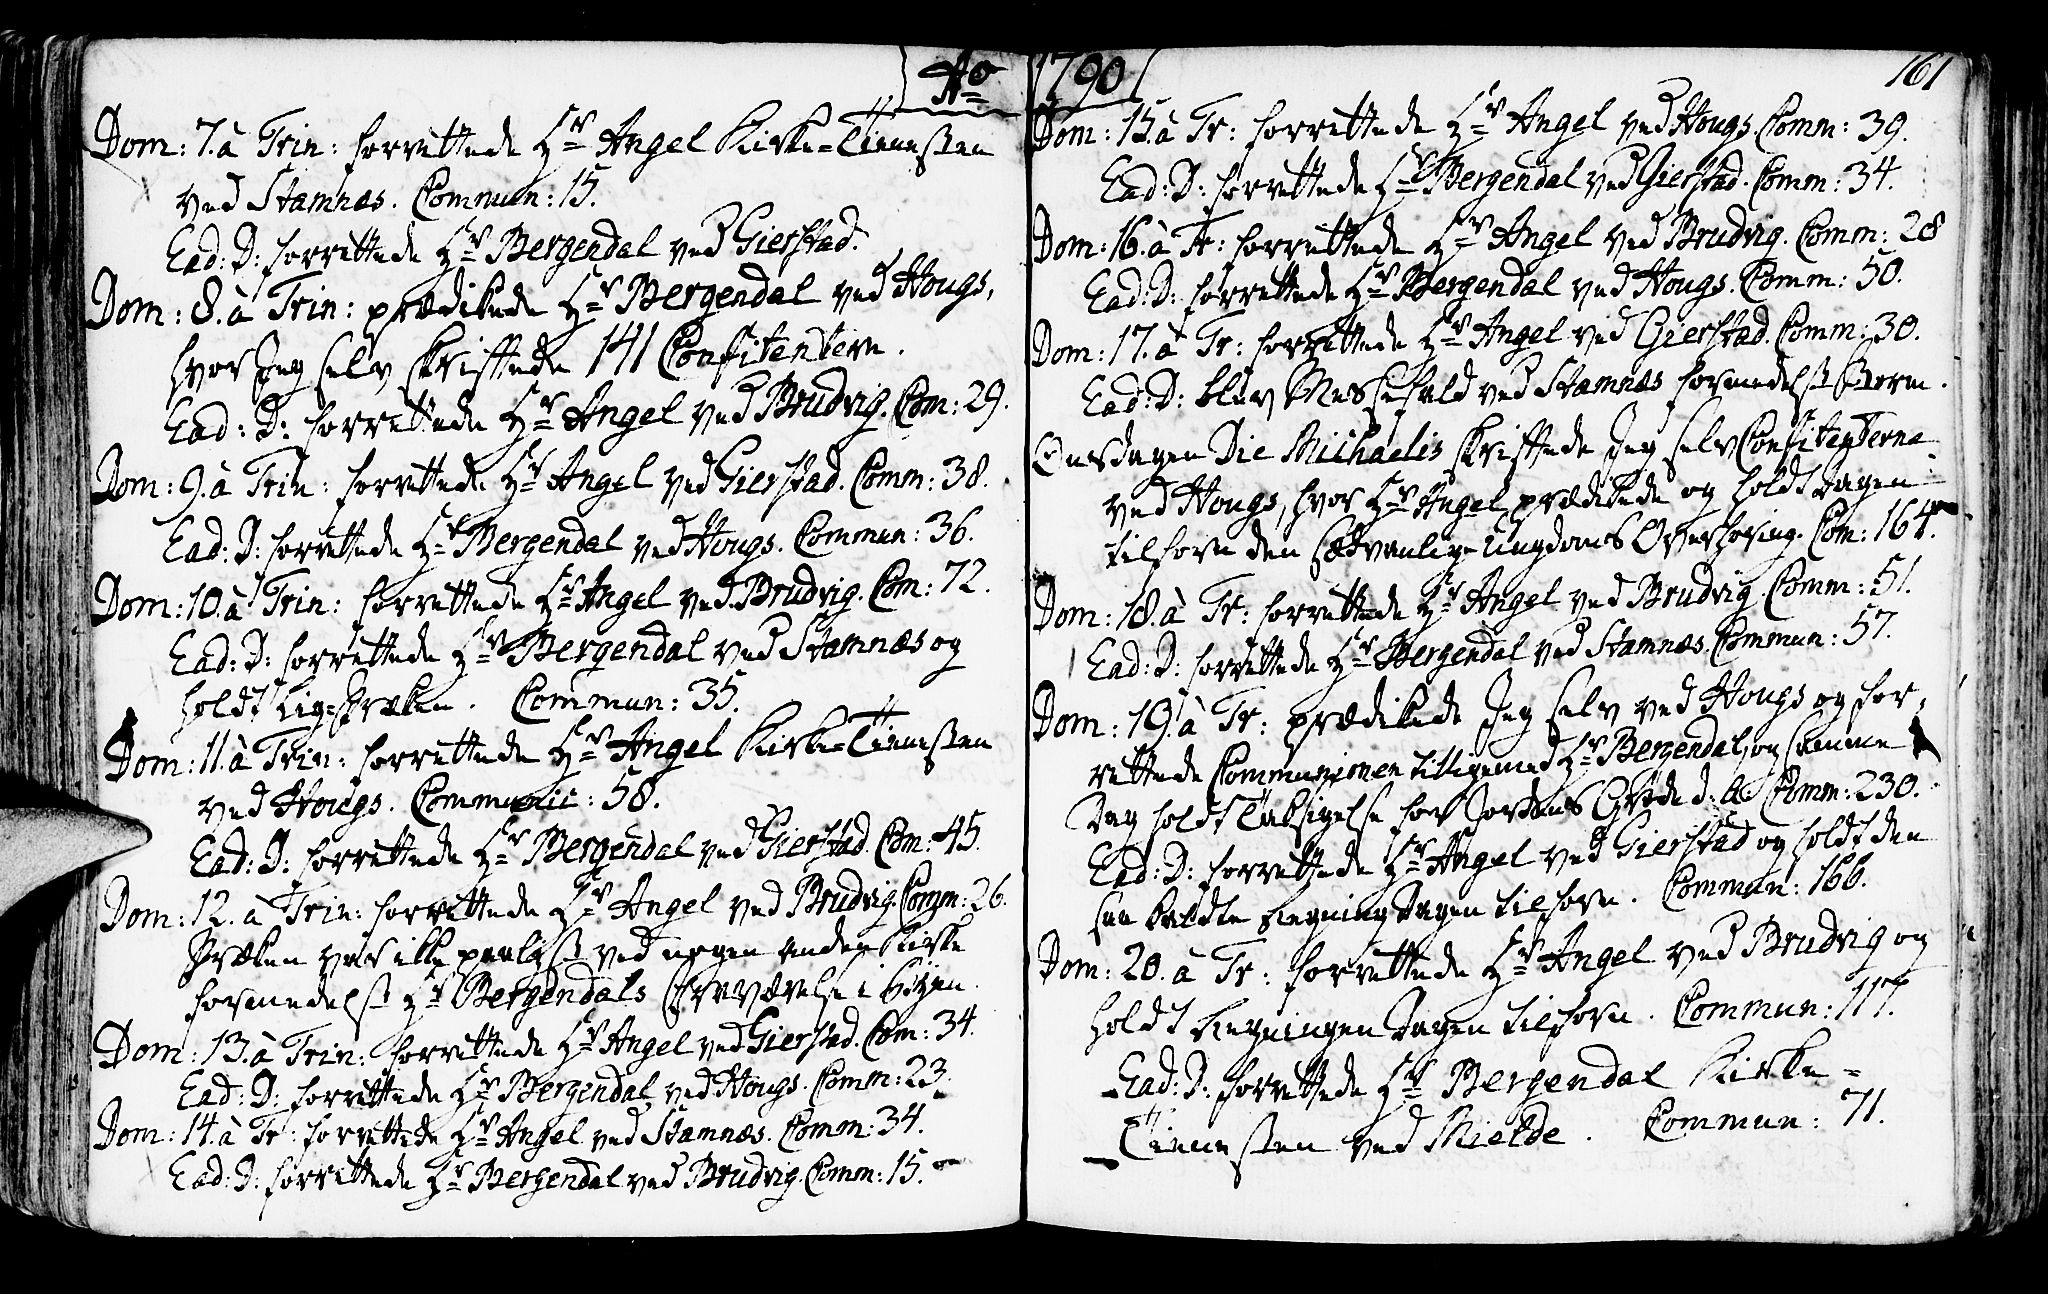 Ao 1790
161
Dom: 7. à Trin: forrettede Hr Angel Kirke-Tienesten
ved Stamnæs. Commun: 15.
Ead: D: forrettede Hr Bergendal ved Gierstad.
Dom: 8. à Trin: prædikede Hr Bergendal ved Hougs,
hvor Jeg selv skriftede 141 Confitentere.
Ead: D: forrettede Hr Angel ved Brudvig. Com: 29.
Dom: 9. à Trin: forrettede Hr Angel ved Gierstad. Comm: 38.
Ead: D: forrettede Hr Bergendal ved Hougs. Commun: 36.
Dom: 10. à Trin: forrettede Hr Angel ved Brudvig. Com: 72.
Ead: D: forrettede Hr Bergendal ved Stamnæs og
holdt Lig-Præken. Commun: 35.
Dom: 11. à Trin: forrettede Hr Angel Kirke-Tienesten
ved Hougs. Communic: 58.
Ead: D: forrettede Hr Bergendal ved Gierstad. Com: 45.
Dom: 12. à Trin: forrettede Hr Angel ved Brudvig. Comm: 26.
Præken var ikke ved nogen anden Kirke
formedelst Hr Bergendals Fraværelse i Byen.
Dom: 13. à Trin: forrettede Hr Angel ved Gierstad. Com: 34.
Ead: D: forrettede Hr Bergendal ved Hougs. Comm: 23.
Dom: 14. à Tr: forrettede Hr Angel ved Stamnæs. Comm: 34.
Ead: D: forrettede Hr Bergendal ved Brudvig. Comm: 15.
Dom: 15. à Tr: forrettede Hr Angel ved Hougs. Comm: 39.
Ead: D: forrettede Hr Bergendal ved Gierstad. Comm: 34.
Dom: 16. à Tr: forrettede Hr Angel ved Brudvig. Comm: 28
Ead: D: forrettede Hr Bergendal ved Hougs. Comm: 50.
Dom: 17. à Tr: forrettede Hr Angel ved Gierstad. Comm: 30.
Ead: D: blev Messefald ved Stamnæs formedelst Storm.
Onsdagen Die Michaelis skriftede Jeg selv Confitenterne
ved Hougs, hvor Hr Angel prædikede og holdt Dagen
tilforn den sædvanlige Ungdoms Overhøring. Com: 164.
Dom: 18. à Tr: forrettede Hr Angel ved Brudvig. Comm: 51.
Ead: D: forrettede Hr Bergendal ved Stamnæs. Commun: 57.
Dom: 19. à Tr: prædikede Jeg selv ved Hougs og for-
rettede Communionen tilligemed Hr Bergendal, og samme
Dag holdt Taksigelse for Jordens Grøde d: A: Comm: 230.
Ead: D: forrettede Hr Angel ved Gierstad og holdt den
saa kaldte Dagen tilforn. Commun: 166.
Dom: 20. à Tr: forrettede Hr Angel ved Brudvig og
holdt Dagen tilforn. Commun: 117.
Ead: D: forrettede Hr Bergendal Kirke-
Tienesten ved Mielde. Commun: 71.